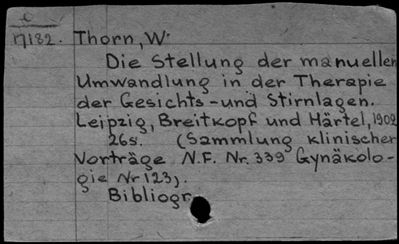 c
17182. Thorn, W.
Die Stellung der manuellen
Umwandlung in der Therapie
der Gesichts-und Stirnlagen.
Leipzig, Breitkopf und Härtel, 1902
26s. (Sammlung klinischer
Vorträge N.F. Nr. 339 Gynäkolo-
gie Nr 123).
Bibliogr.